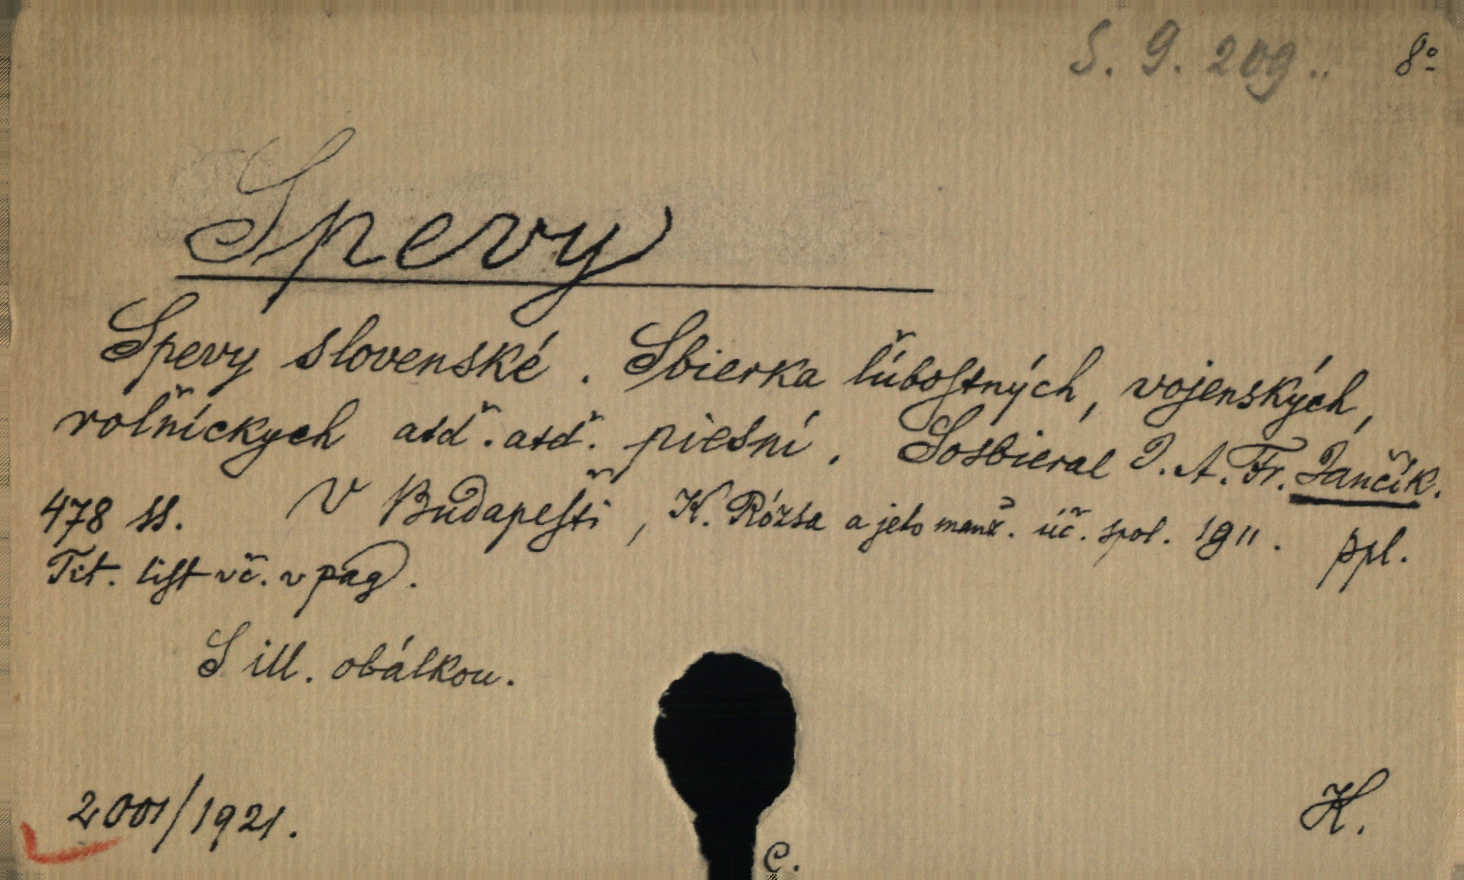 S. 9. 209.. 8º
Spevy
Spevy slovenské. Sbierka ľúbostných, vojenských,
roľníckych atď. atď. piesní. Sosbieral J. A. Fr. Jančík.
478 ss. V Budapešti, K. Rózsa a jeho manž. úč. spol. 1911. ppl.
Tit. list vč. v pag.
S ill. obálkou.
2001/1921. K.
C.